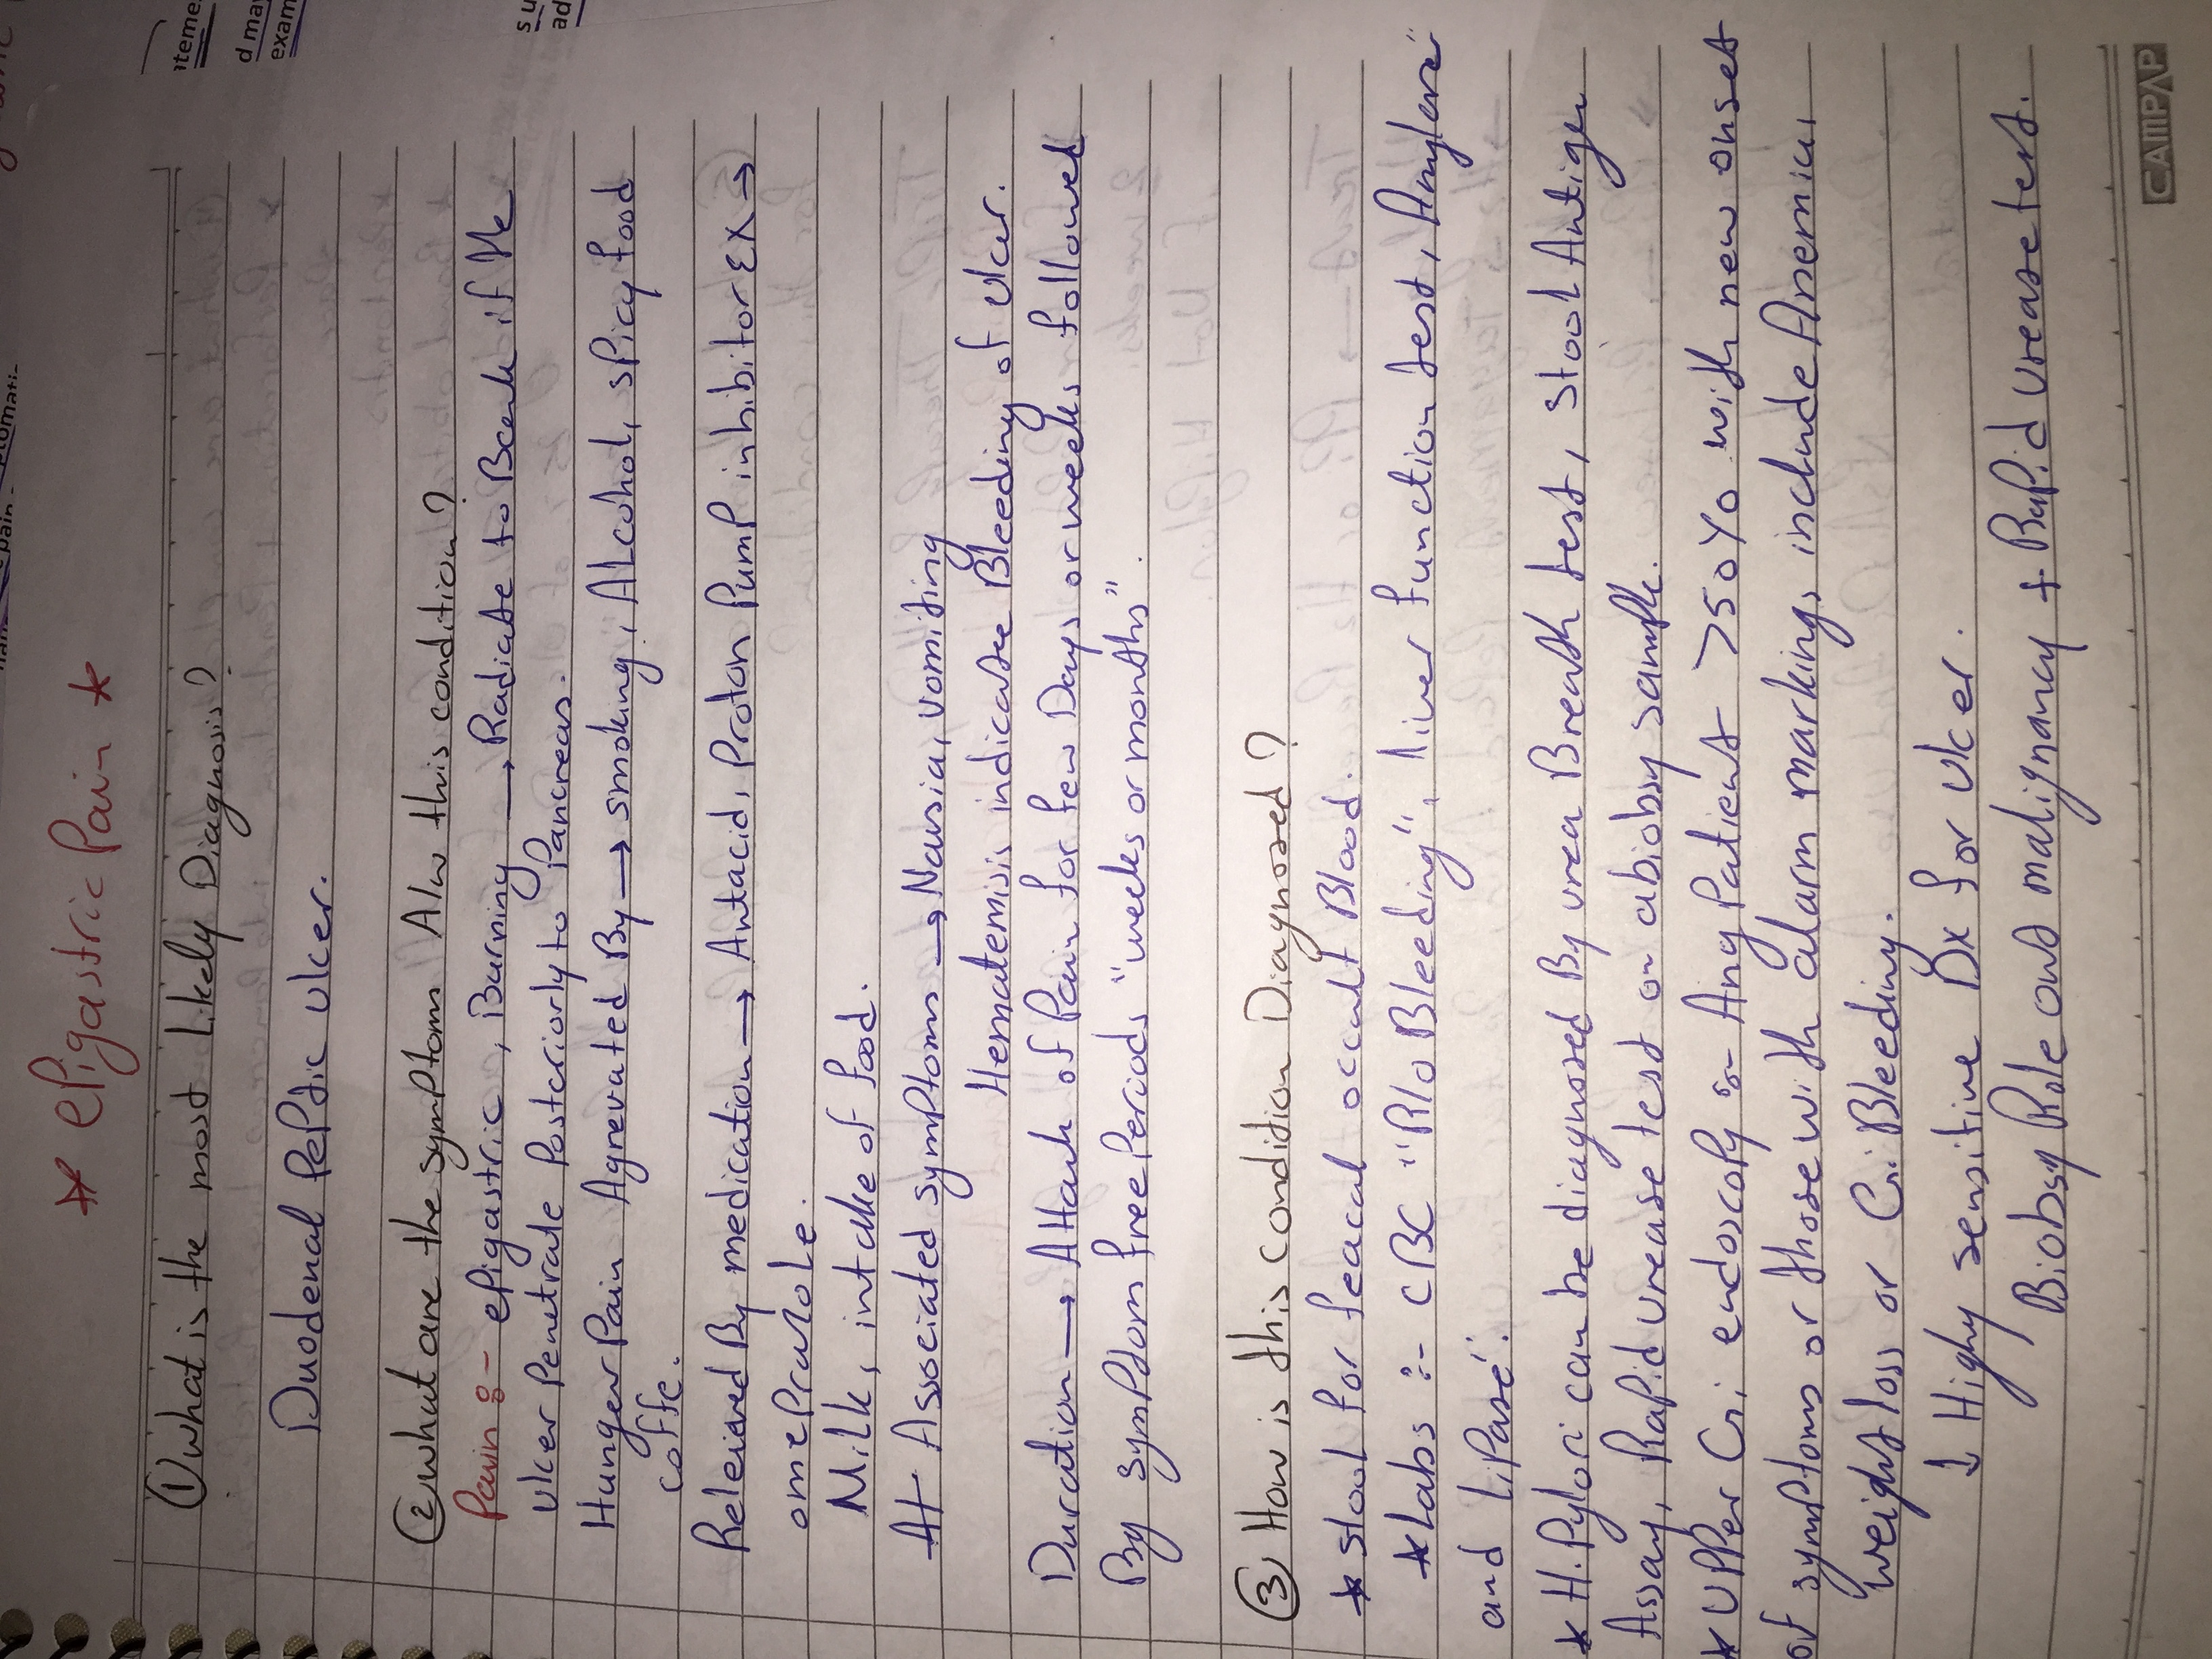 * ePigastric Pain *
① what is the most Likely Diagnosis?
Duodenal PePtic ulcer.
② what are the symptoms A/w this condition?
Pain :- ePigastric, Burning → Radiate to Back if the
ulcer Penetrate Posteriorly to Pancreas.
Hunger Pain Agrevated By → smoking, ALcohol, sPicy food
coffe.
Releived By medication → Antacid, Proton PumP inhibitor EX →
omePrazole.
Milk, intake of food.
Associated symPtoms → Nausia, vomiting
Hematemisis indicate Bleeding of ulcar.
Duration → Attack of Pain for few Days or weeks followed
By symPtom free Periods "weeks or months".
③ How is this condition Diagnosed?
* stool for feacal occult Blood.
* Labs :- CBC "R/o Bleeding", liver function test, Amylase"
and LiPase".
* H.Pylori can be diagnosed By urea Breath test, stool Antigen
Assay, RaPid urease test on abiobsy samPle.
* UPPer Gi endoscoPy :- Any Patient >50 Yo with new onset
of symPtoms or those with alarm markings include Anemia,
weight loss or Gi Bleeding.
↓ Highy sensitive Dx for ulcer.
Biobsy Role out malignancy + RaPid urease test.
CAMPAP
iteme
d may
exam
s u
ad
pain